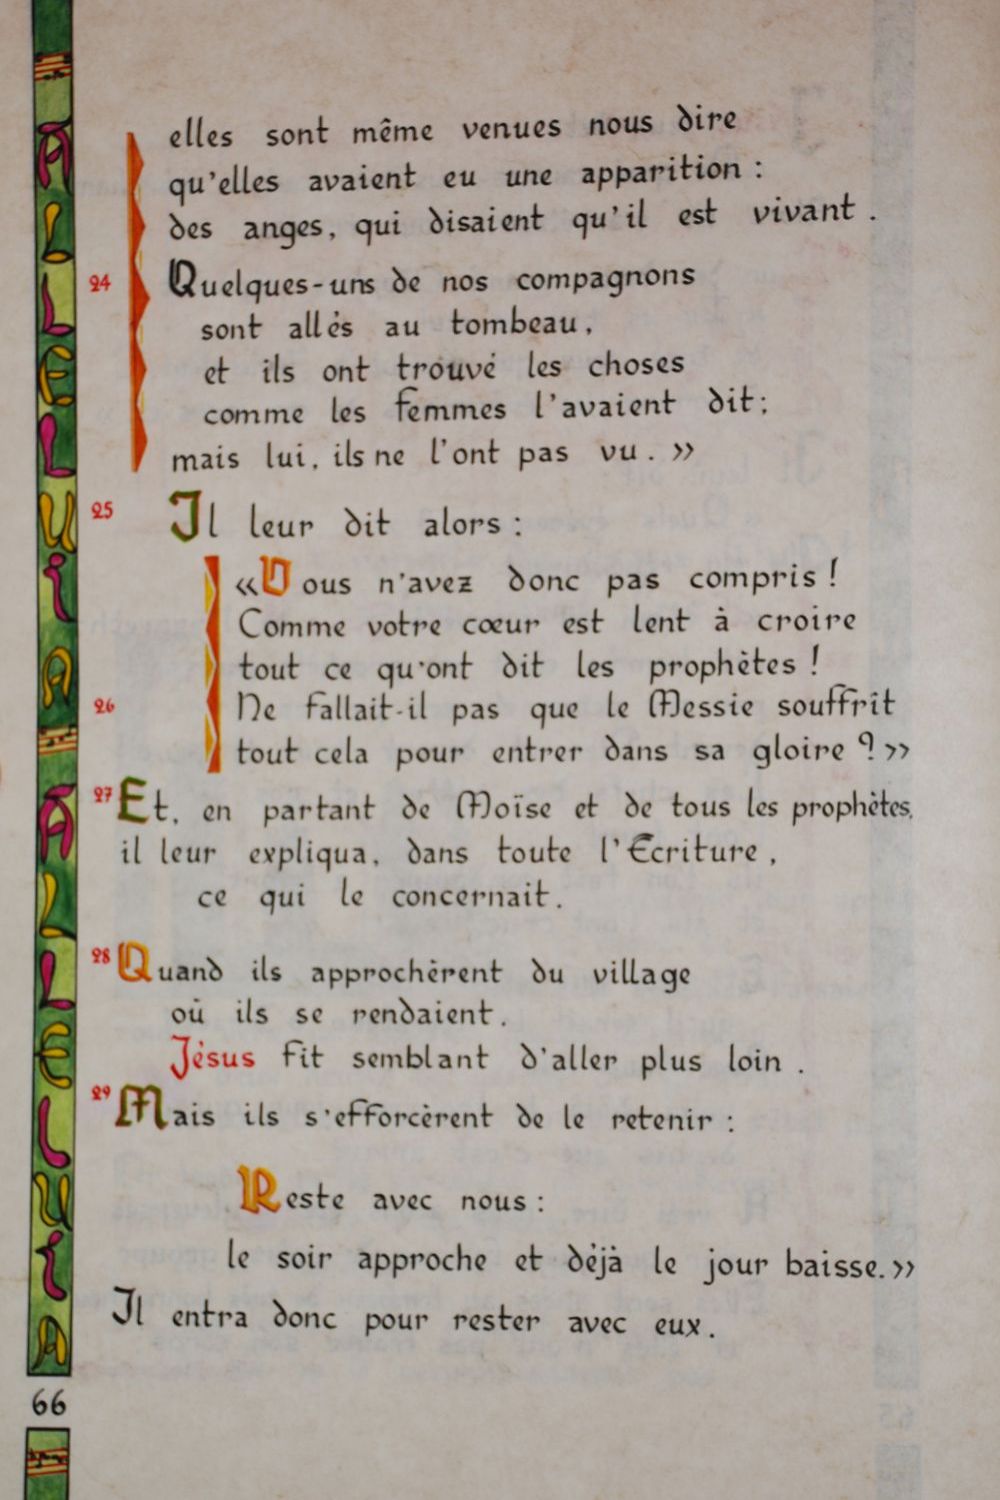 elles sont même venues nous dire
qu'elles avaient eu une apparition :
des anges, qui disaient qu'il est vivant .
24 Quelques-uns de nos compagnons
sont allés au tombeau,
et ils ont trouvé les choses
comme les femmes l'avaient dit;
mais lui, ils ne l'ont pas vu . »
25 Il leur dit alors :
« Vous n'avez donc pas compris !
Comme votre cœur est lent à croire
tout ce qu'ont dit les prophètes !
26 Ne fallait-il pas que le Messie souffrît
tout cela pour entrer dans sa gloire ? »
27 Et, en partant de Moïse et de tous les prophètes,
il leur expliqua, dans toute l'Ecriture ,
ce qui le concernait .
28 Quand ils approchèrent du village
où ils se rendaient .
Jésus fit semblant d'aller plus loin .
29 Mais ils s'efforcèrent de le retenir :
Reste avec nous :
le soir approche et déjà le jour baisse. »
Il entra donc pour rester avec eux .
ALLELUIA
ALLELUIA
66